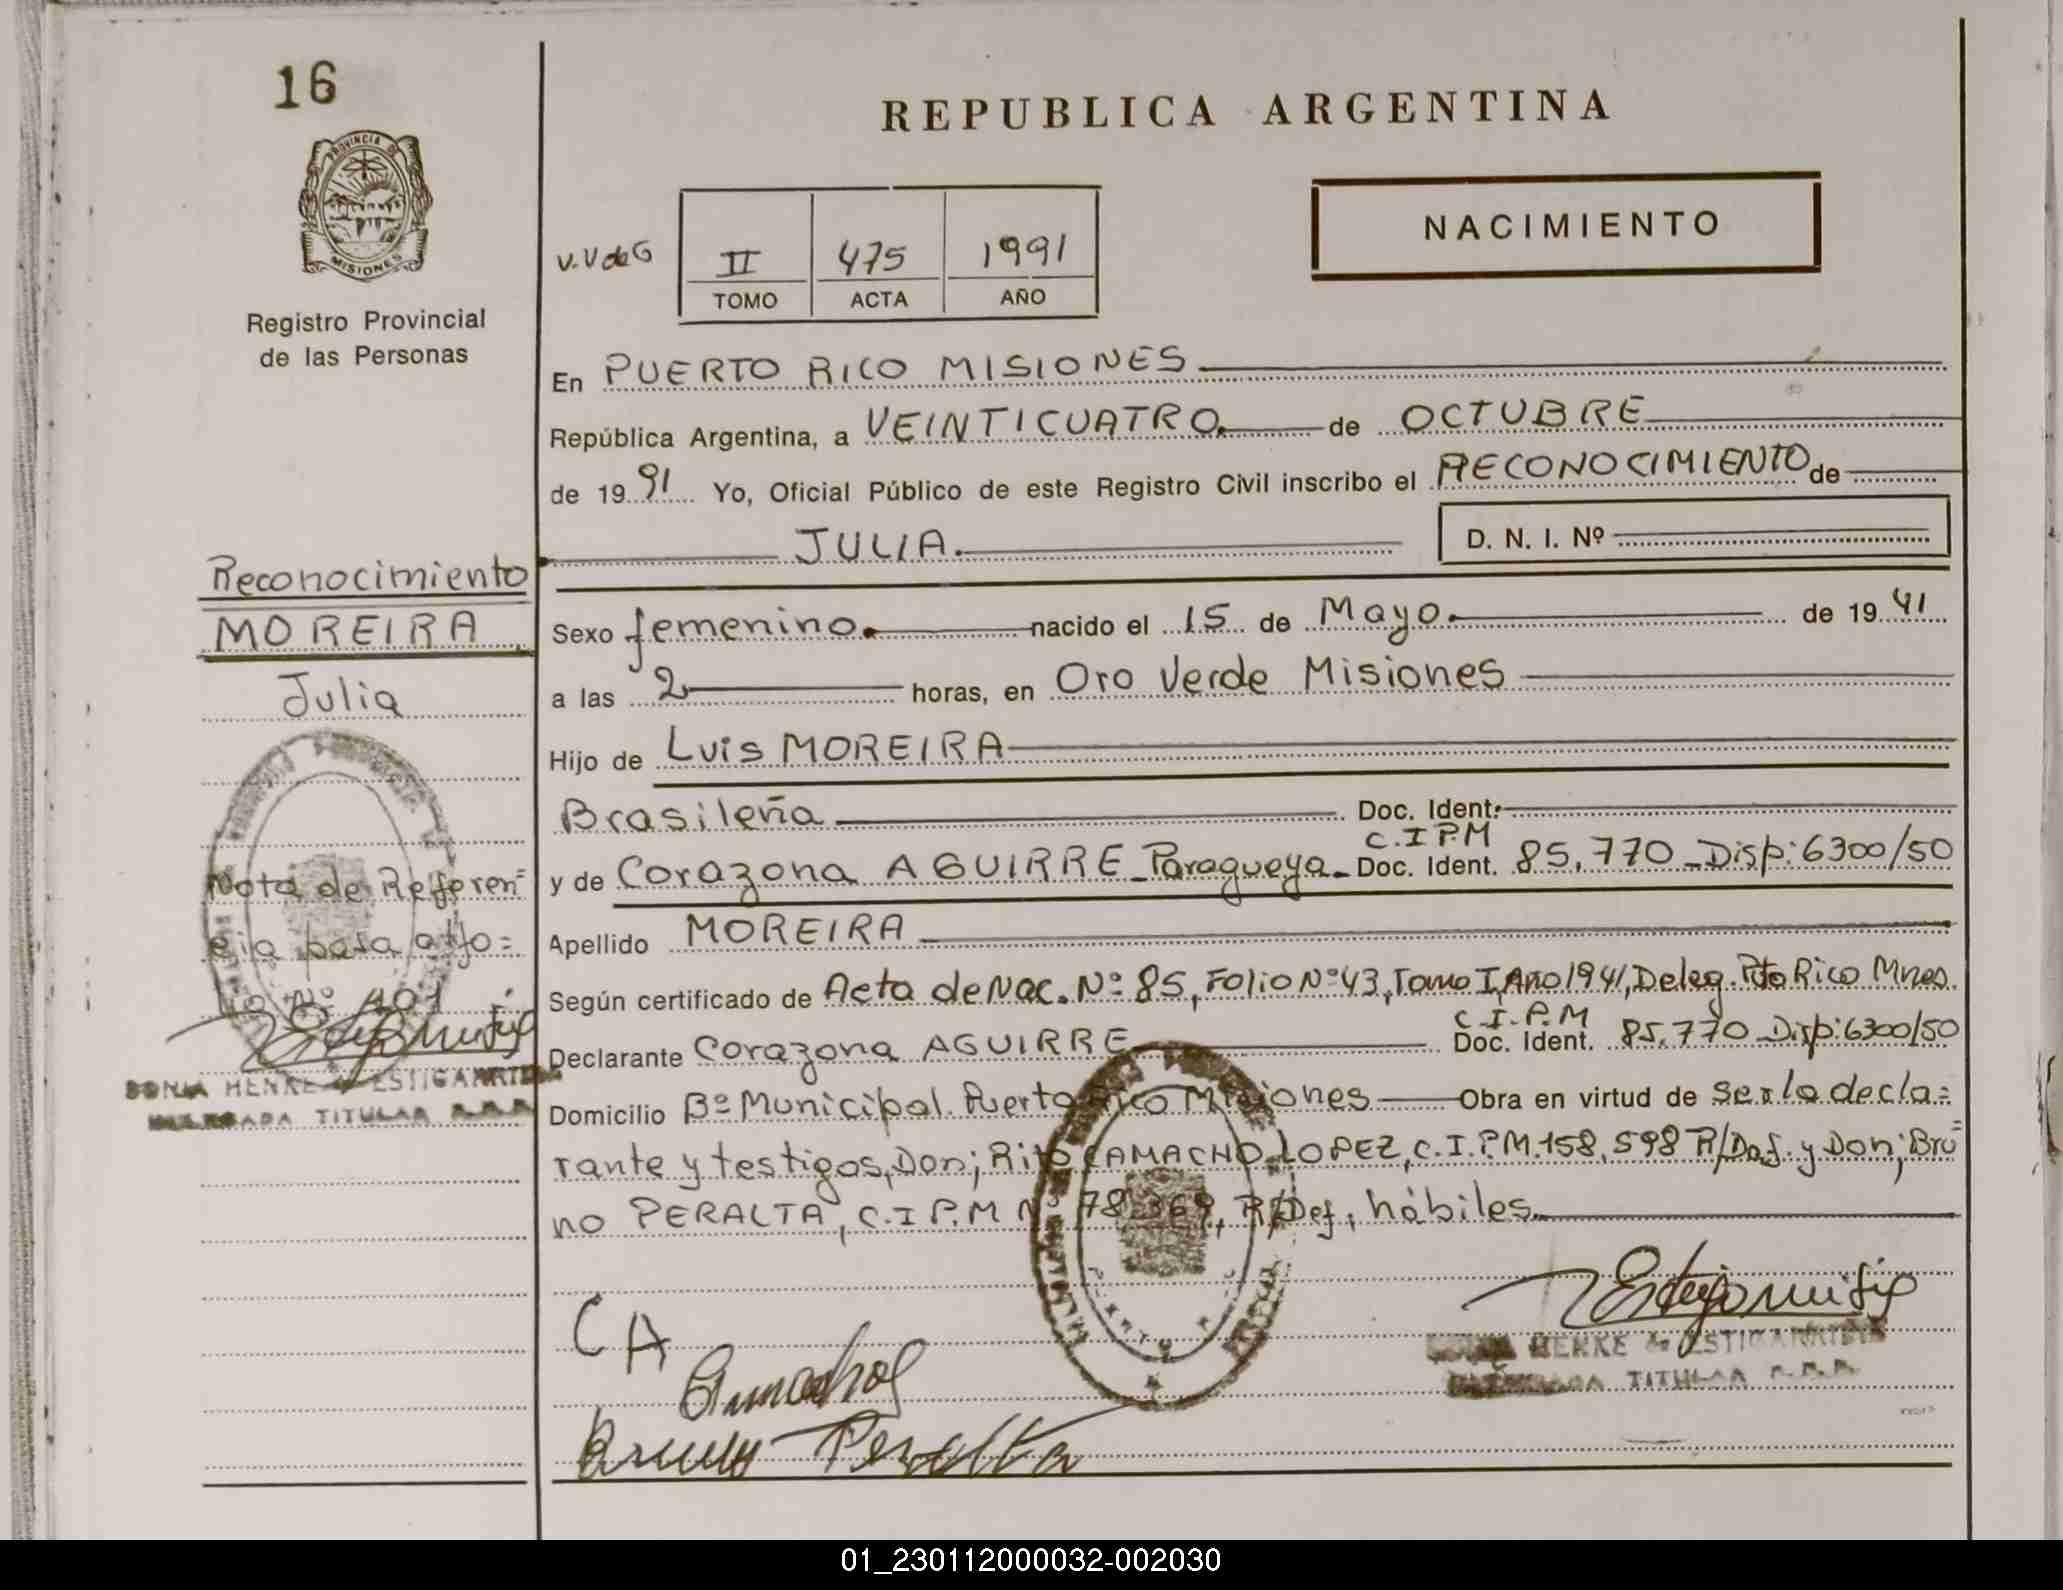 16
REPUBLICA ARGENTINA
PROVINCIA DE
MISIONES
Registro Provincial
de las Personas
NACIMIENTO
V.V de G
II 475 1991
TOMO ACTA AÑO
En PUERTO RICO MISIONES
República Argentina, a VEINTICUATRO de OCTUBRE
de 1991 Yo, Oficial Público de este Registro Civil inscribo el RECONOCIMIENTO de
JULIA. D. N. I. Nº
Reconocimiento
MOREIRA
Julia
Sexo femenino. nacido el 15 de Mayo. de 1941
a las 2 horas, en Oro Verde Misiones
Hijo de Luis MOREIRA
Brasileña Doc. Ident.
C.I.P.M
y de Corazona AGUIRRE - Paragueya - Doc. Ident. 85.770 - Disp: 6300/50
Nota de Referen=
cia para atjo=
Nº 401
Apellido MOREIRA
Según certificado de Acta de Nac. Nº 85, Folio Nº 43, Tomo I, Año 1941, Deleg. Pto Rico Mnes.
C.I.P.M
Declarante Corazona AGUIRRE Doc. Ident. 85.770 Disp: 6300/50
SONIA HENKE de ESTIGARRIBIA
DELEGADA TITULAR
Domicilio Bº Municipal Puerto Rico Misiones Obra en virtud de ser la decla=
rante y testigos, Don; Rito CAMACHO LOPEZ, C.I.P.M. 158.598 R/Def. y Don; Bru=
no PERALTA, C.I.P.M Nº 78.369, R/Def, hábiles.
CA
Camachol
Bruno Peralta
SONIA HENKE de ESTIGARRIBIA
DELEGADA TITULAR
01_230112000032-002030